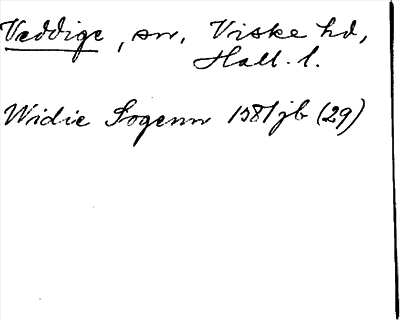 Veddige, sn, Viske hd,
Hall. l.
Widie Sogenn 1581 jb (29)